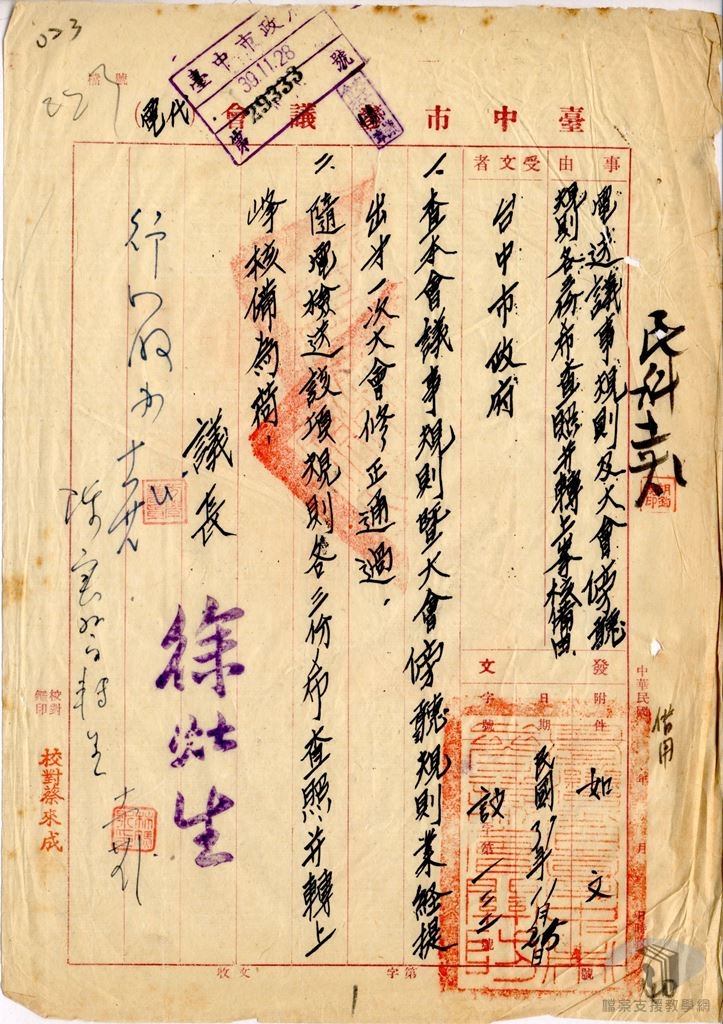 023
臺中市政府
39.11.28
第29333號
臺中市議會(代電)
事由
電送議事規則及大會傍聽
規則各三份希查照并轉上峯核備由
受文者
台中市政府
民科
發文
附件
如文
日期
民國39年11月25日
字號
議字第一三號
一、查本會議事規則暨大會傍聽規則業經提
出才一次大會修正通過.
二、隨電檢送該項規則各三份希查照并轉上
峰核備為荷.
議長
徐灶生
借用
中華民國 年 月
校對
監印
校對蔡來成
收文 字第 號
檔號
檔案支援教學網